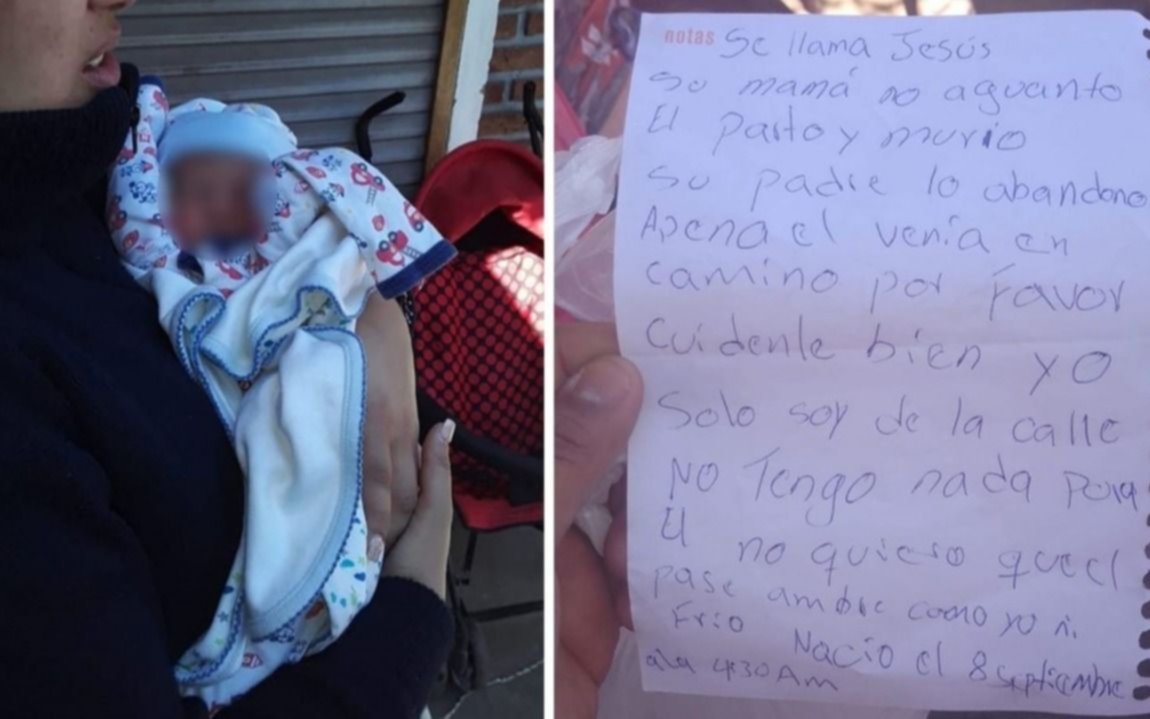 notas Se llama Jesús
su mamá no aguanto
El parto y murio
su padre lo abandono
Apena el venía en
camino por favor
Cuidenle bien yo
Solo soy de la calle
NO Tengo nada para
El no quiero que el
pase ambre como yo ni
Frio Nacio el 8 septiembre
ala 4:30 Am